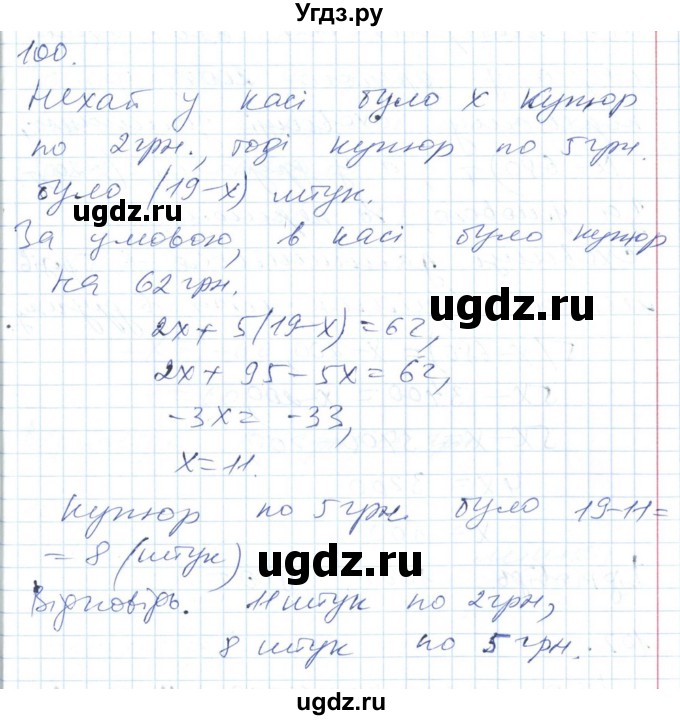 Угдз.ру
100.
Нехай у касі було x купюр
по 2грн., тоді купюр по 5грн.
було (19-x) штук.
ugdz.ru
За умовою, в касі було купюр
на 62грн.
ugdz.ru
2x + 5(19-x) = 62,
2x + 95 - 5x = 62,
-3x = -33,
x = 11.
Купюр по 5грн. було 19-11=
= 8 (штук).
ugdz.ru
Відповідь. 11 штук по 2грн,
8 штук по 5 грн.
ugdz.ru